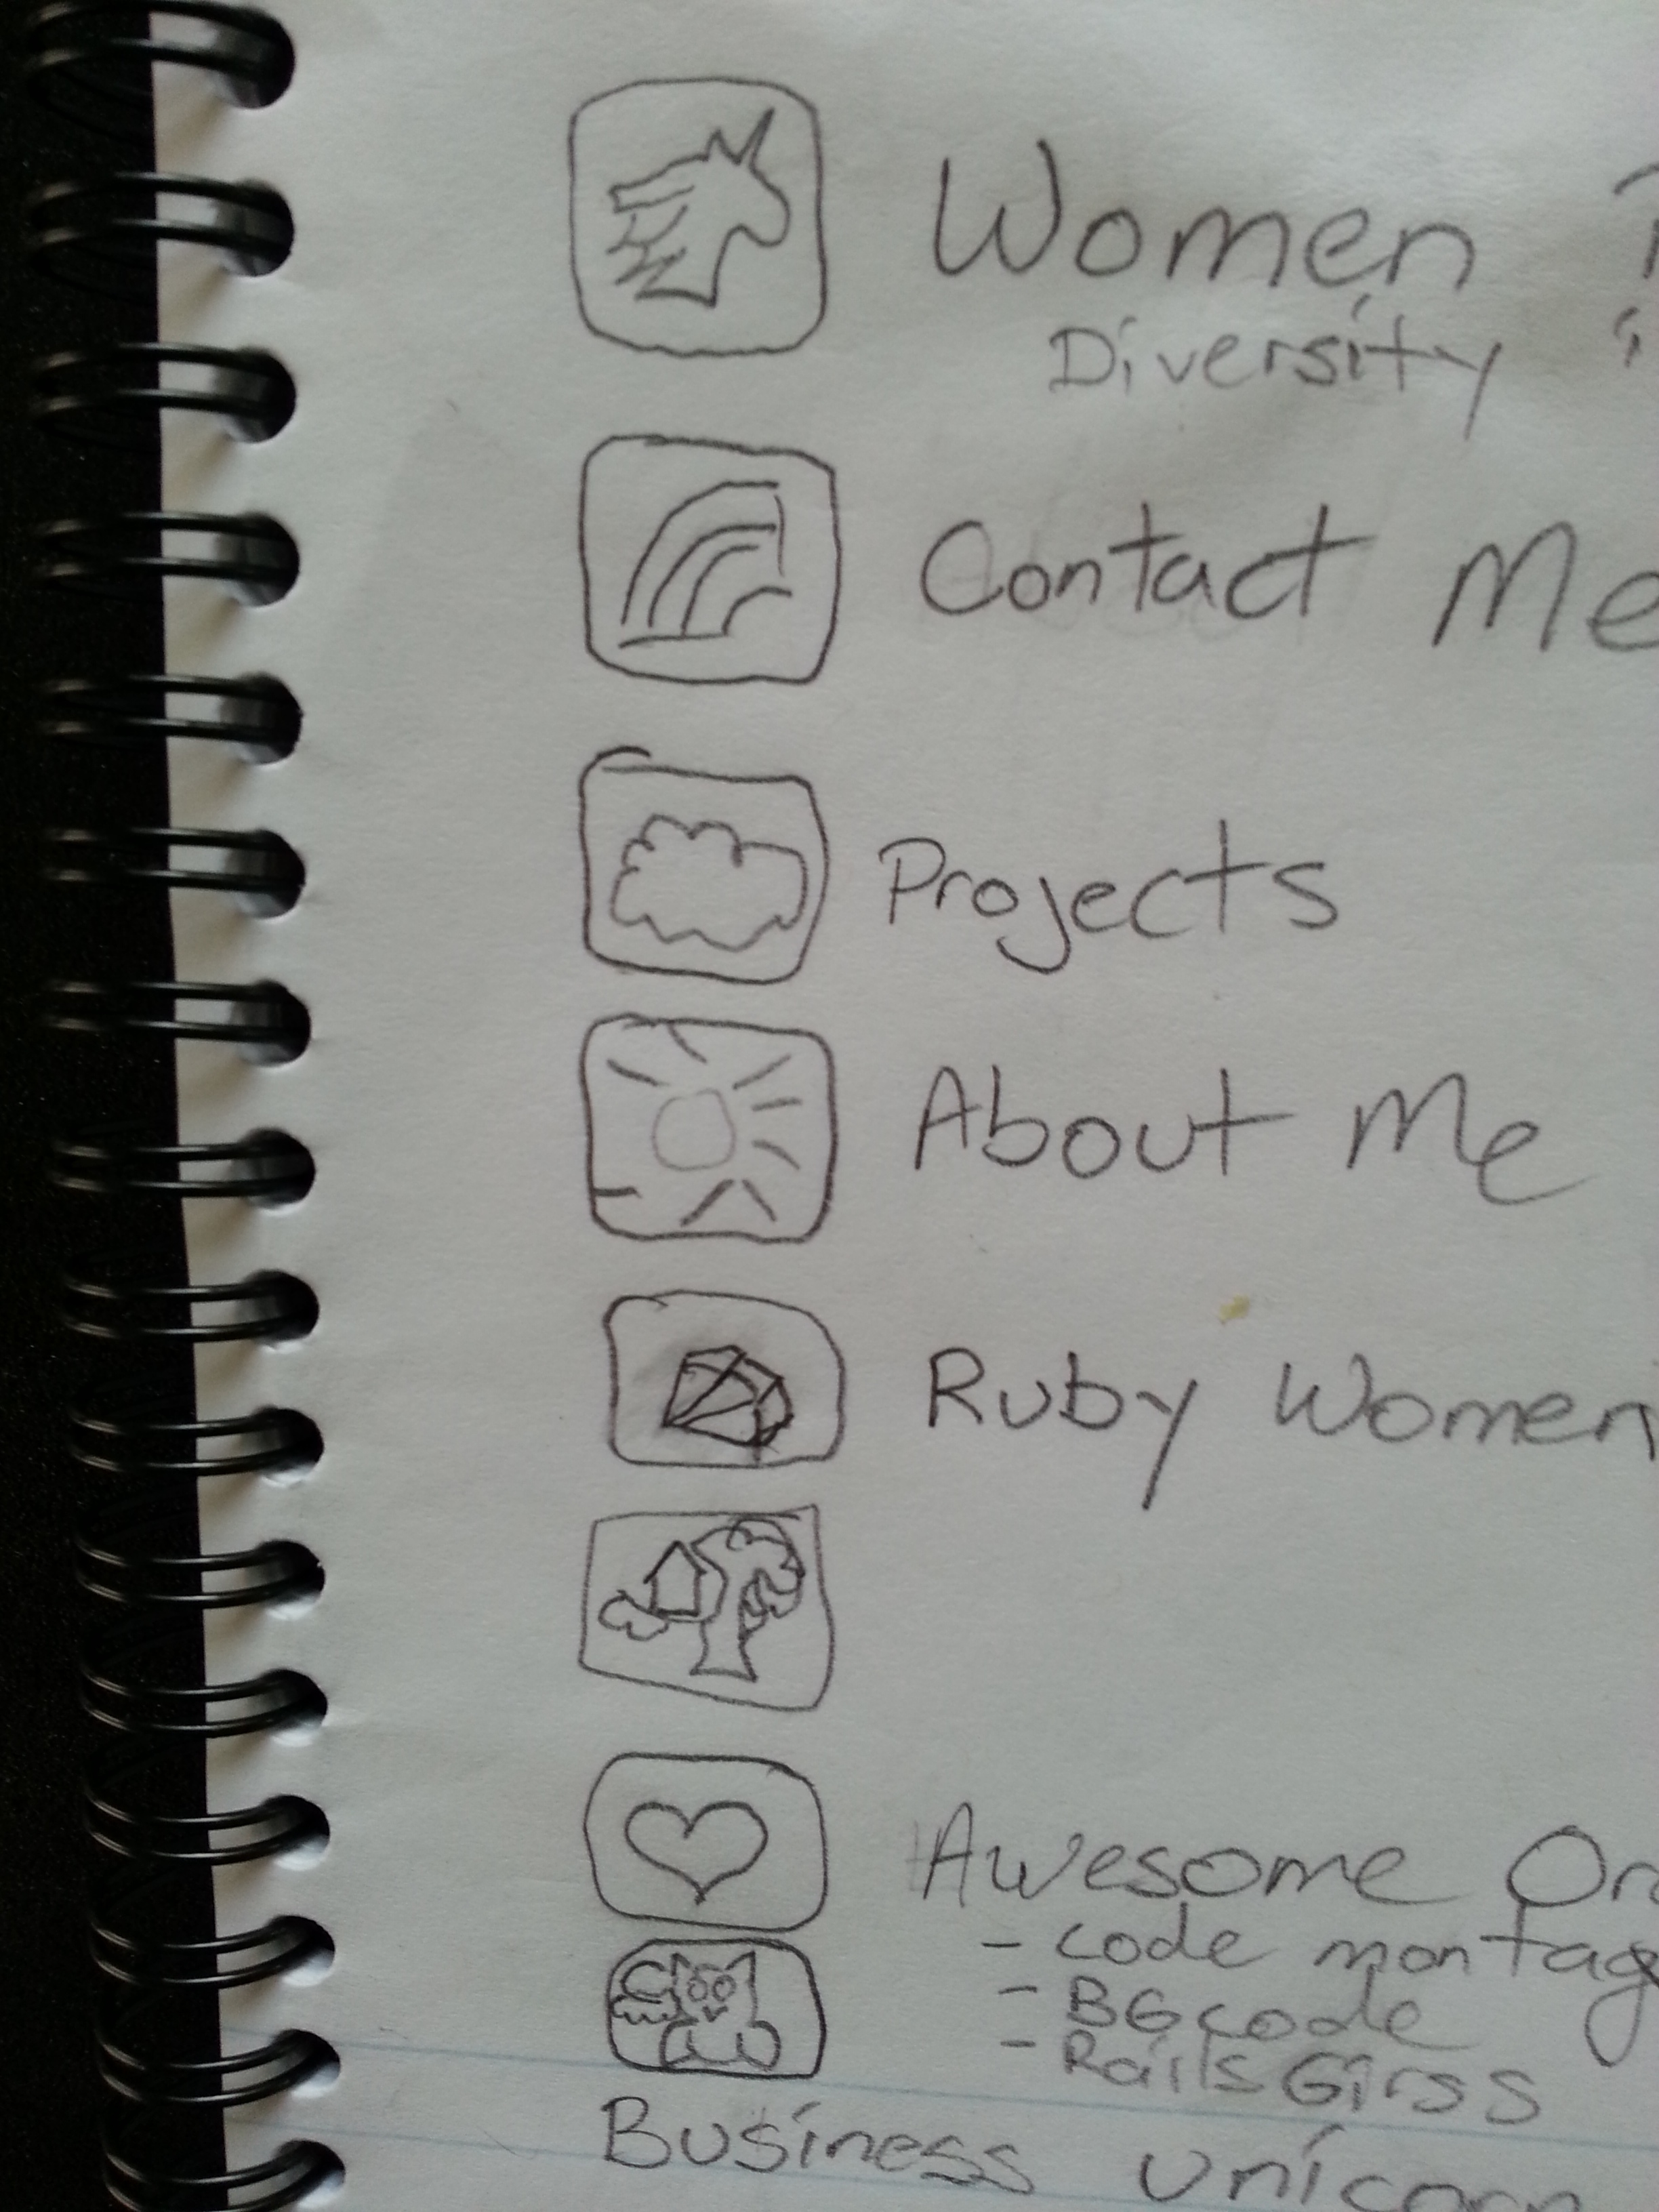 Women
Diversity
Contact Me
Projects
About Me
Ruby Women
Awesome
- code montag
- BGcode
- Rails Girss
Business Unicorn